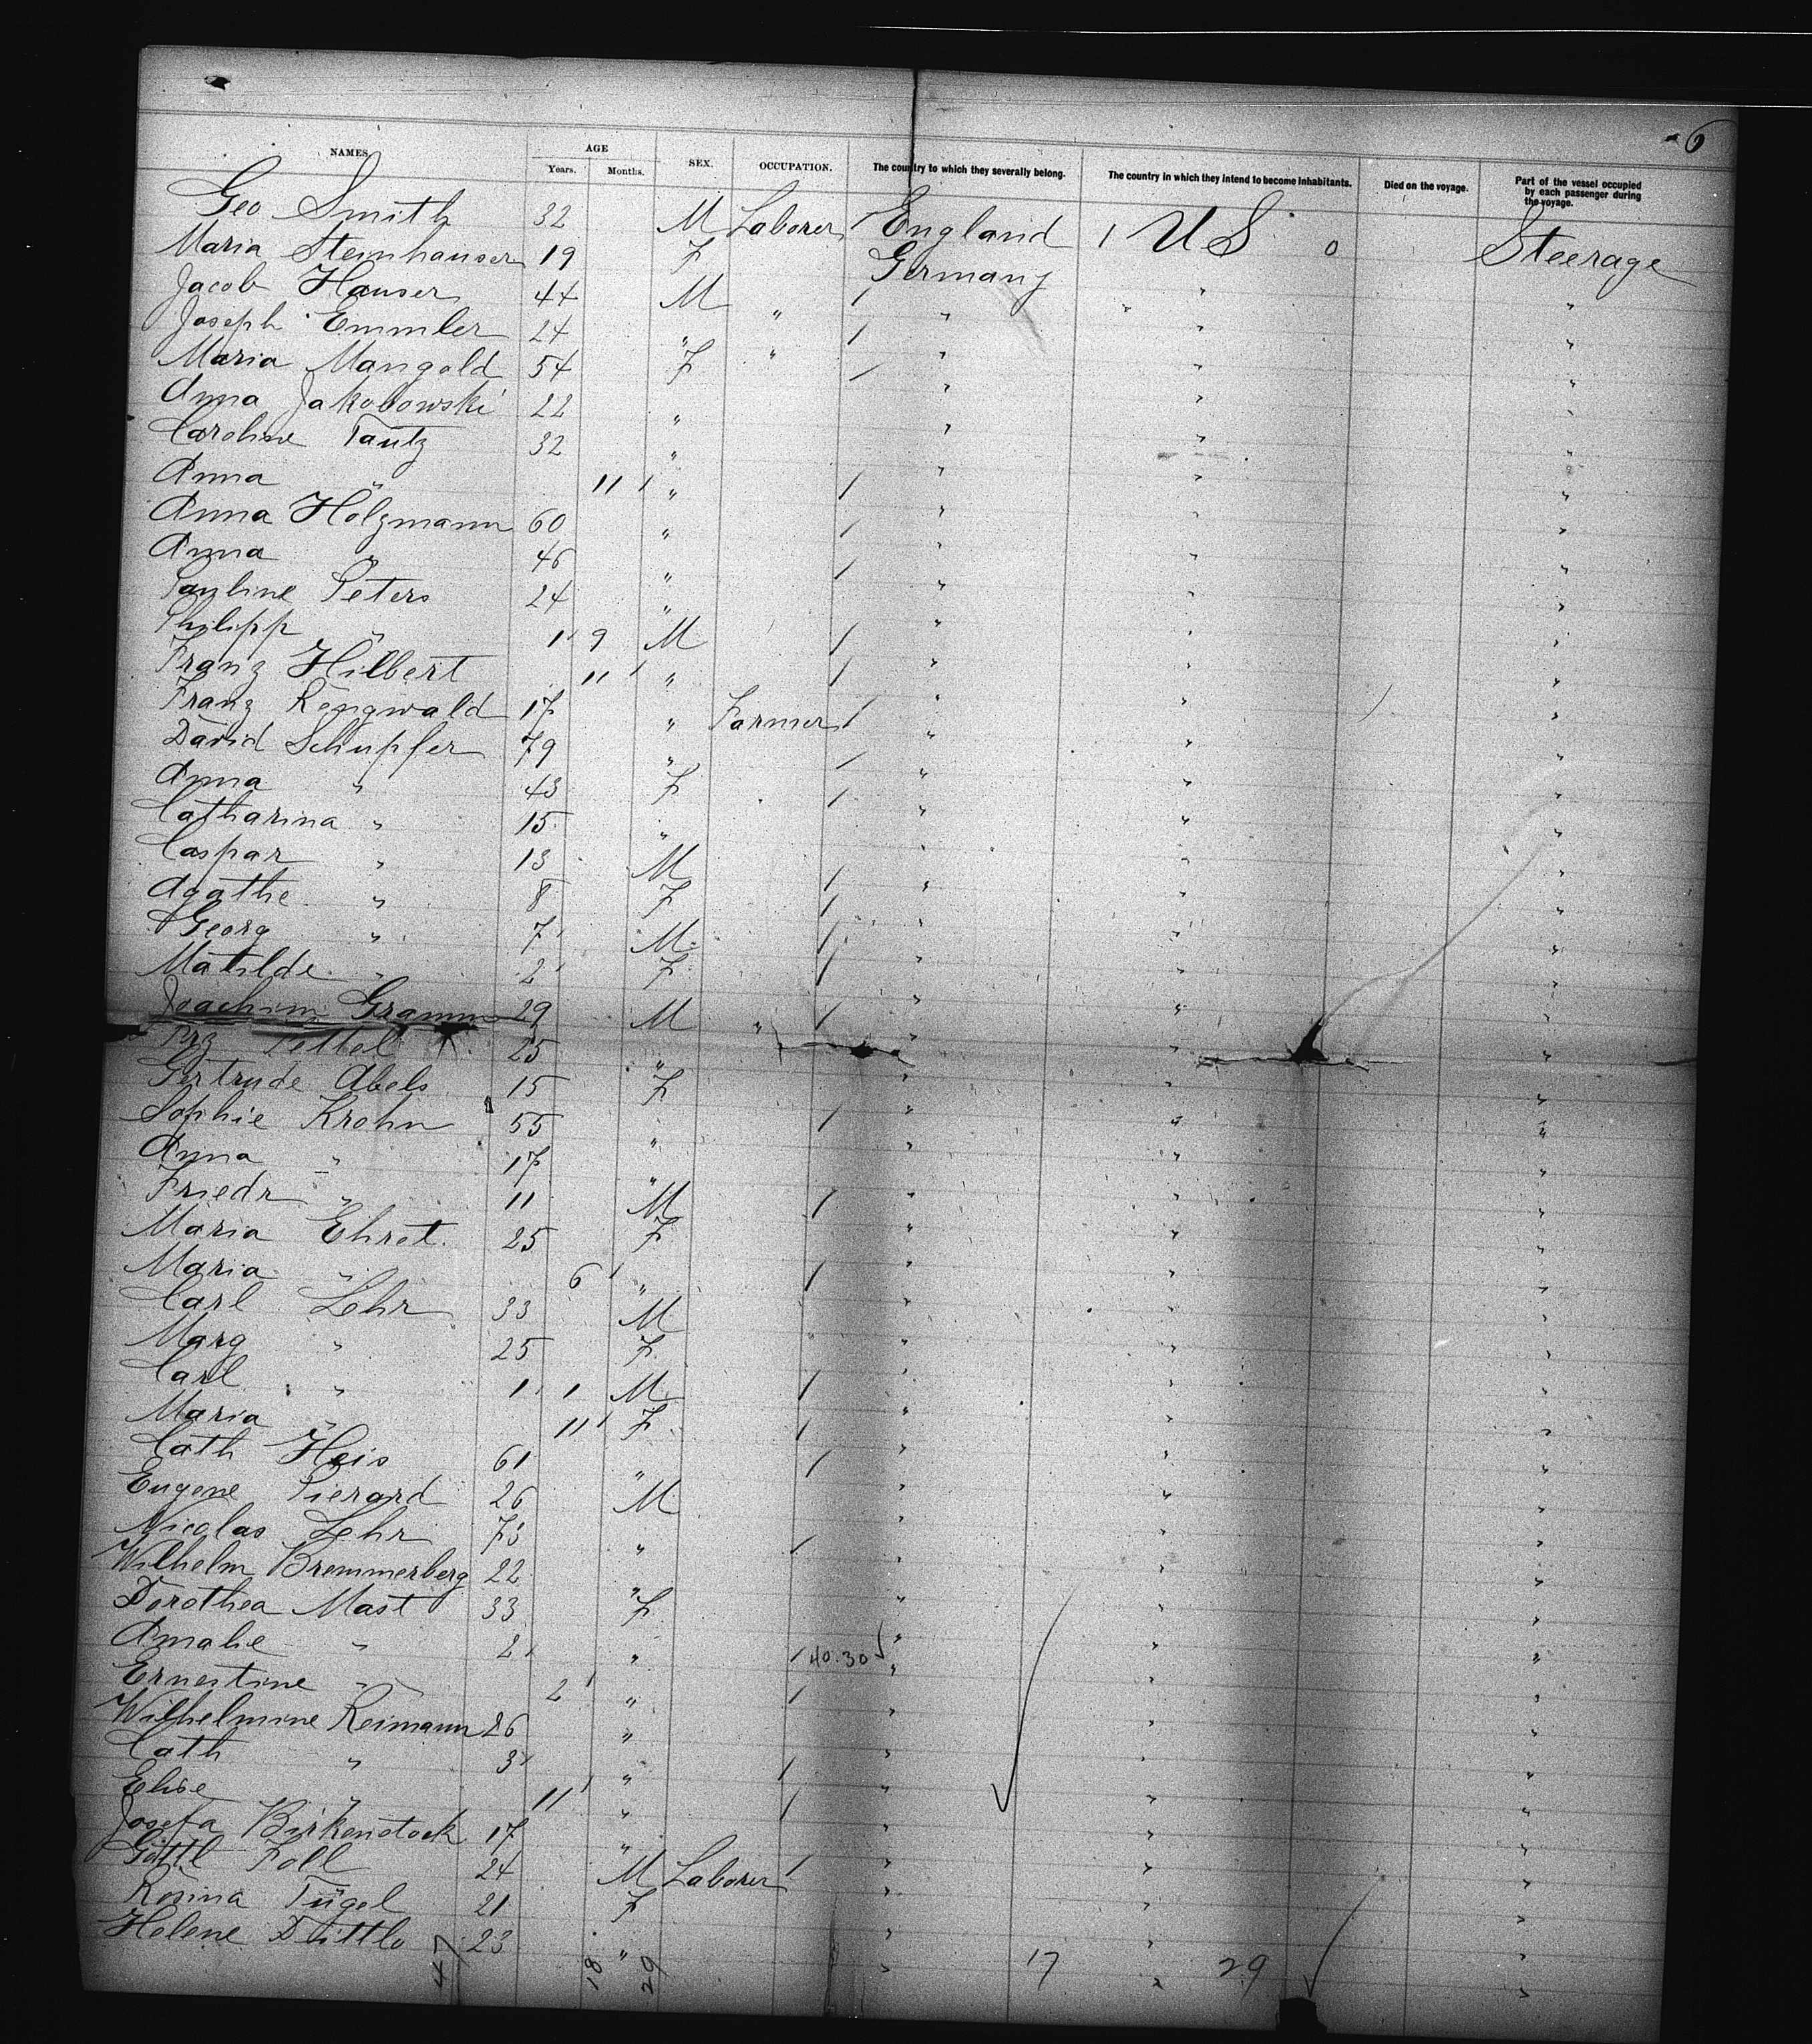 6
NAMES. AGE SEX. OCCUPATION. The country to which they severally belong. The country in which they intend to become inhabitants. Died on the voyage. Part of the vessel occupied by each passenger during the voyage.
Years. Months.
Geo Smith 32 M Laborer / England / US 0 Steerage
Maria Steinhauser 19 F Germany " "
Jacob Hauser 44 M " / " " "
Joseph Emmler 24 " " / " " "
Maria Mangold 54 F / " " "
Anna Jakobowski 22 " " " "
Caroline Tautz 32 " " " "
Anna " 11 " / " " "
Anna Holzmann 60 " / " " "
Anna " 46 " / " " "
Pauline Peters 24 " " " "
Philipp " 1 9 M / " " "
Franz Hilbert 11 " / " " "
Franz Rengwald 17 " Farmer / " " "
David Schupfer 79 " / " " "
Anna " 43 F / " " "
Catharina " 15 " " " "
Caspar " 13 M / " " "
Agathe " 8 F / " " "
Georg " 7 M / " " "
Matilde " 2 F / " " "
Joachim Gramm 29 M " / " " "
Tettel 25 " " " "
Gertrude Abels 15 F " " "
Sophie Krohn 55 " / " " "
Anna " 17 " " " "
Friedr " 11 M / " " "
Maria Ehret 25 F " " "
Maria " 6 " / " " "
Carl Lehr 33 M " " "
Marg " 25 F " " "
Carl " 1 1 M / " " "
Maria " 11 F / " " "
Cath Heis 61 " / " " "
Eugene Pierard 26 M " " "
Nicolas Lehr 73 " / " " "
Wilhelm Bremmerberg 22 " " " "
Dorothea Mast 33 F " " "
Amalie " 2 " / 40.30 " " "
Ernestine " 2 " / " " "
Wilhelmine Reimann 26 " " " "
Cath " 3 " / " " "
Elise " 11 " / " " "
Josefa Birkenstock 17 " " " "
Gottl Foll 24 M Laborer / " " "
Rosina Tügel 21 F " " "
Helene Dittlo 23 " " " "
47 18 29 17 29